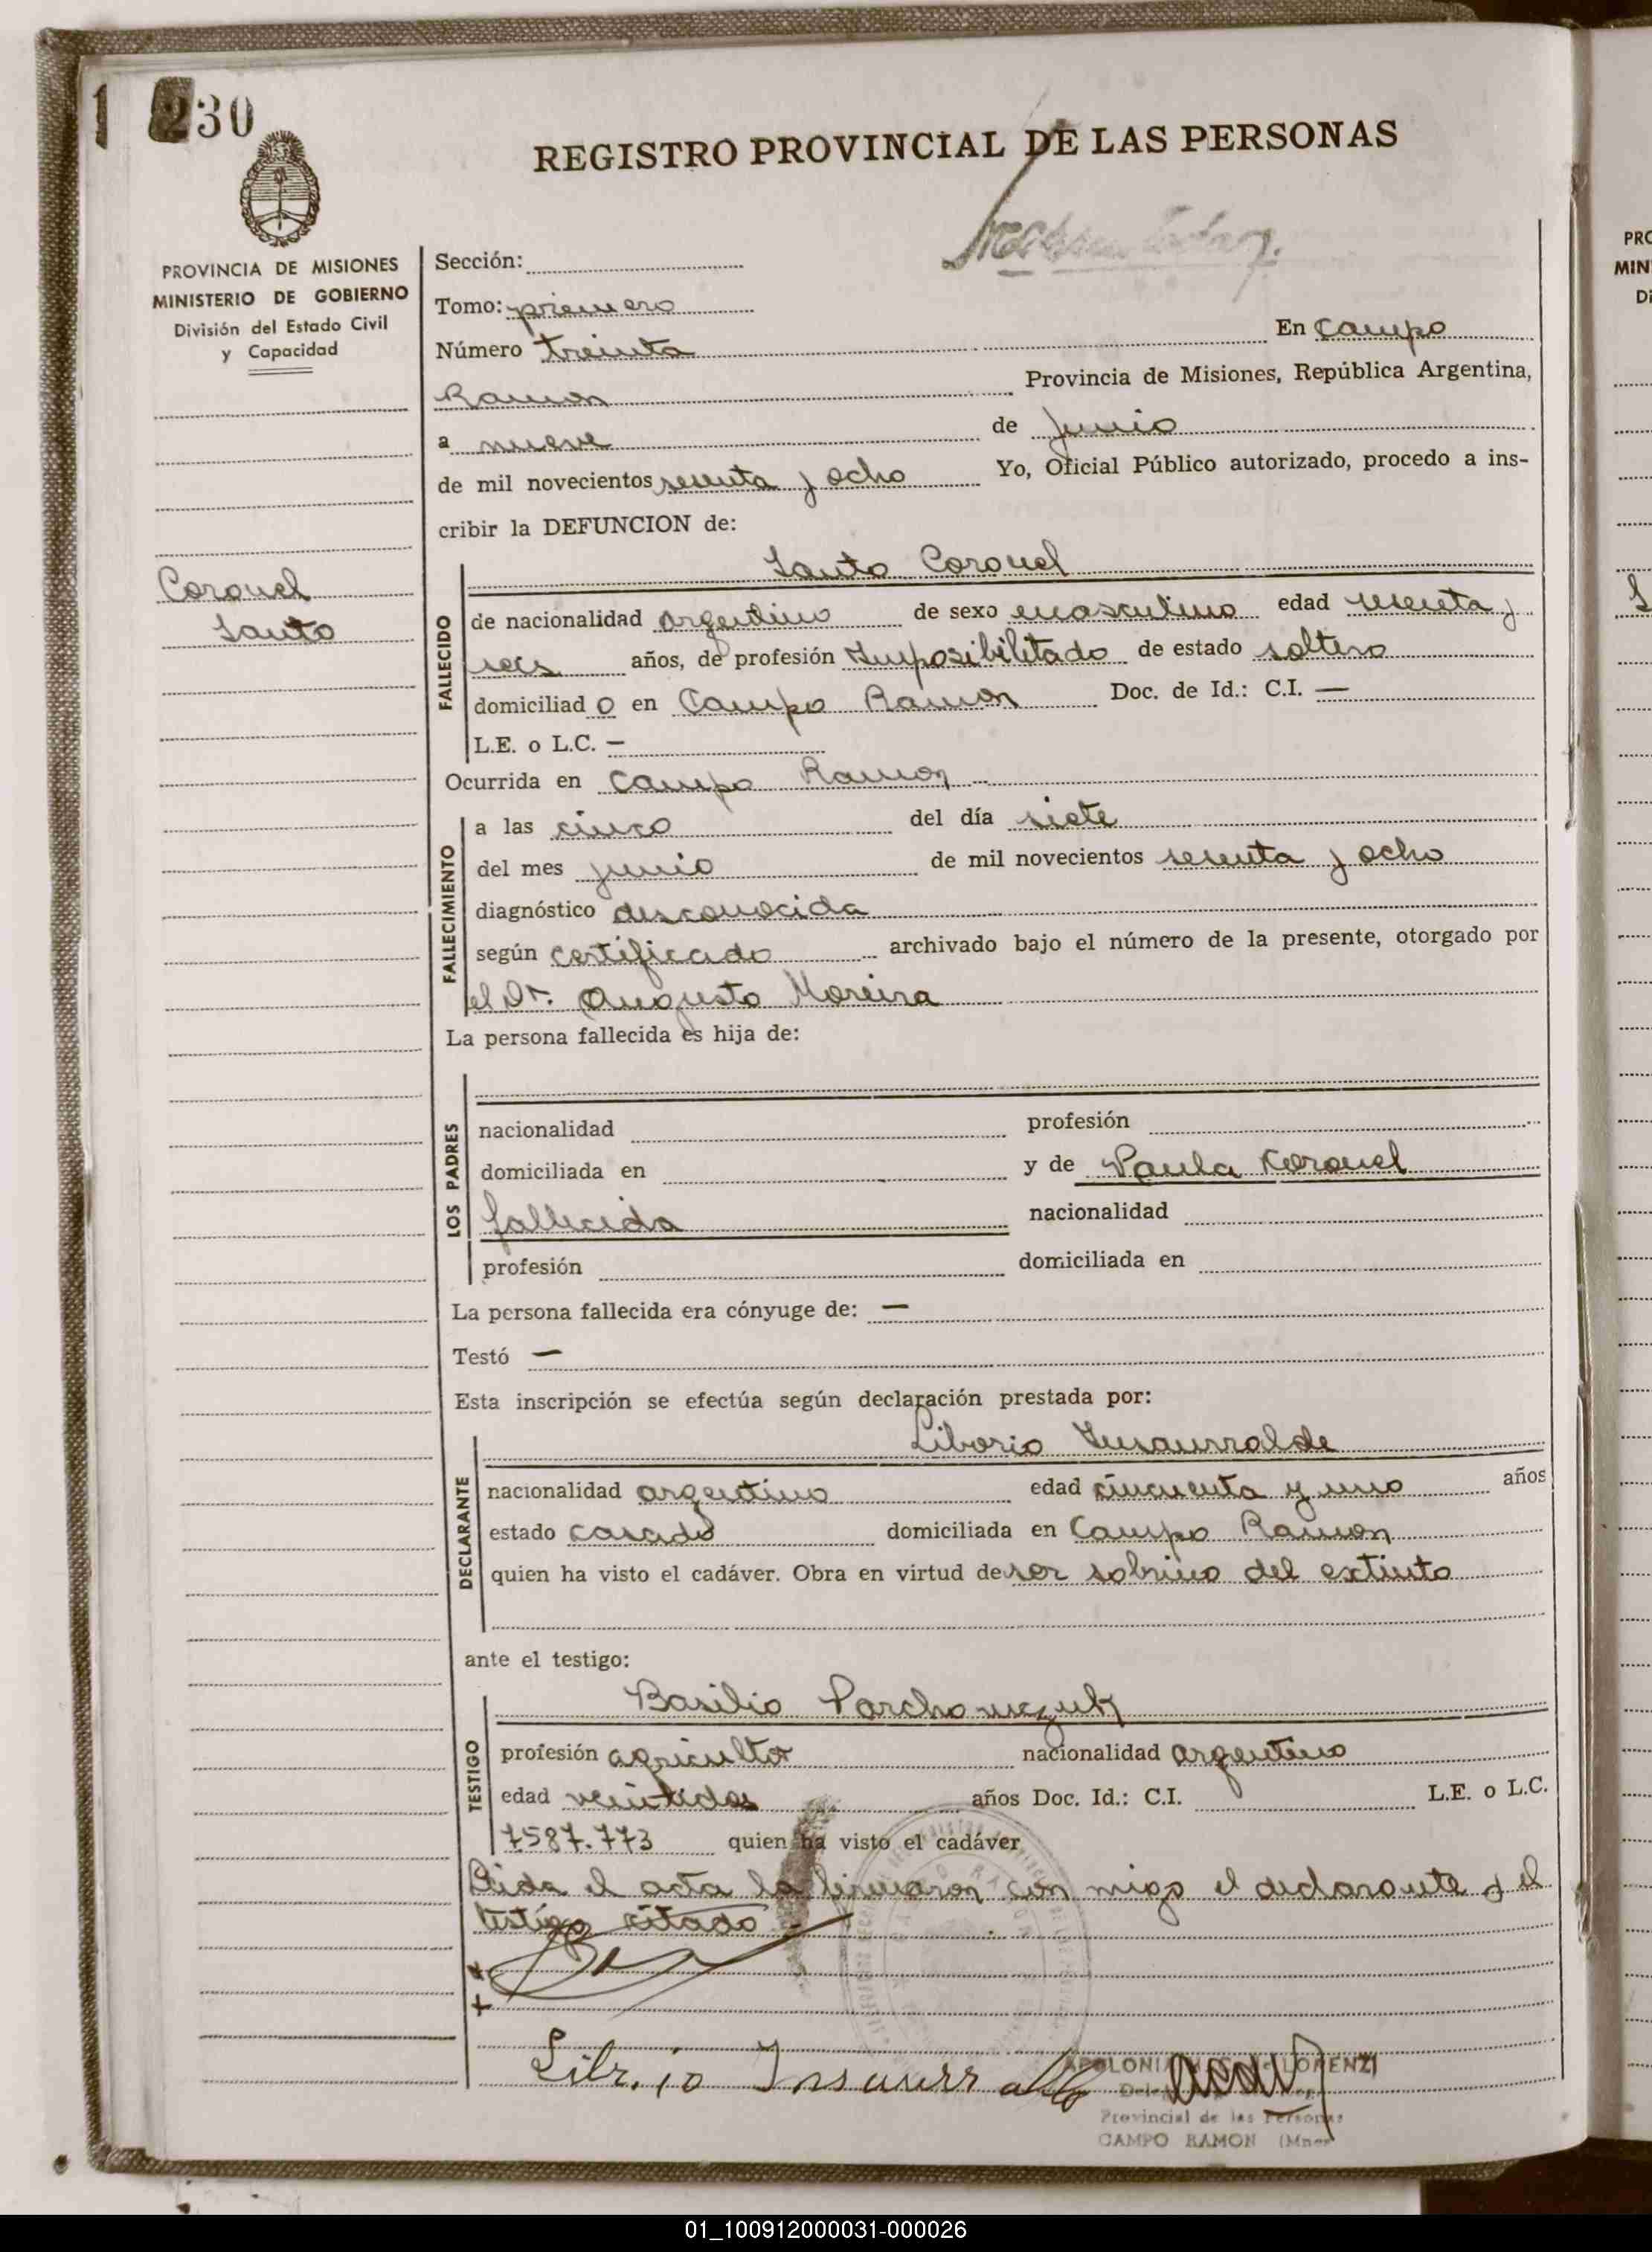 1 230
REGISTRO PROVINCIAL DE LAS PERSONAS
PROVINCIA DE MISIONES
MINISTERIO DE GOBIERNO
División del Estado Civil
y Capacidad
Coronel
Santo
Sección:
Tomo: primero
Número treinta En Campo
Ramon Provincia de Misiones, República Argentina,
a nueve de junio
de mil novecientos sesenta y ocho Yo, Oficial Público autorizado, procedo a ins-
cribir la DEFUNCION de:
Santo Coronel
FALLECIDO
de nacionalidad argentino de sexo masculino edad sesenta y
seis años, de profesión Imposibilitado de estado soltero
domiciliad o en Campo Ramon Doc. de Id.: C.I. —
L.E. o L.C. —
Ocurrida en Campo Ramon
FALLECIMIENTO
a las cinco del día siete
del mes junio de mil novecientos sesenta y ocho
diagnóstico desconocida
según certificado archivado bajo el número de la presente, otorgado por
el Dr. Augusto Moreira
La persona fallecida es hija de:
LOS PADRES
nacionalidad profesión
domiciliada en y de Paula Coronel
fallecida nacionalidad
profesión domiciliada en
La persona fallecida era cónyuge de: —
Testó —
Esta inscripción se efectúa según declaración prestada por:
Liborio Insaurralde
DECLARANTE
nacionalidad argentino edad cincuenta y uno años
estado casado domiciliada en Campo Ramon
quien ha visto el cadáver. Obra en virtud de ser sobrino del extinto
ante el testigo:
Basilio Parchowezuk
TESTIGO
profesión agricultor nacionalidad argentino
edad veintidos años Doc. Id.: C.I. L.E. o L.C.
7587.773 quien ha visto el cadáver
Leida el acta la firmaron con migo el declarante y el
testigo citado
Librio Insaurralde
LORENZI
Provincial de las Personas
CAMPO RAMON (Mnes
PRO
MIN
Di
S
01_100912000031-000026